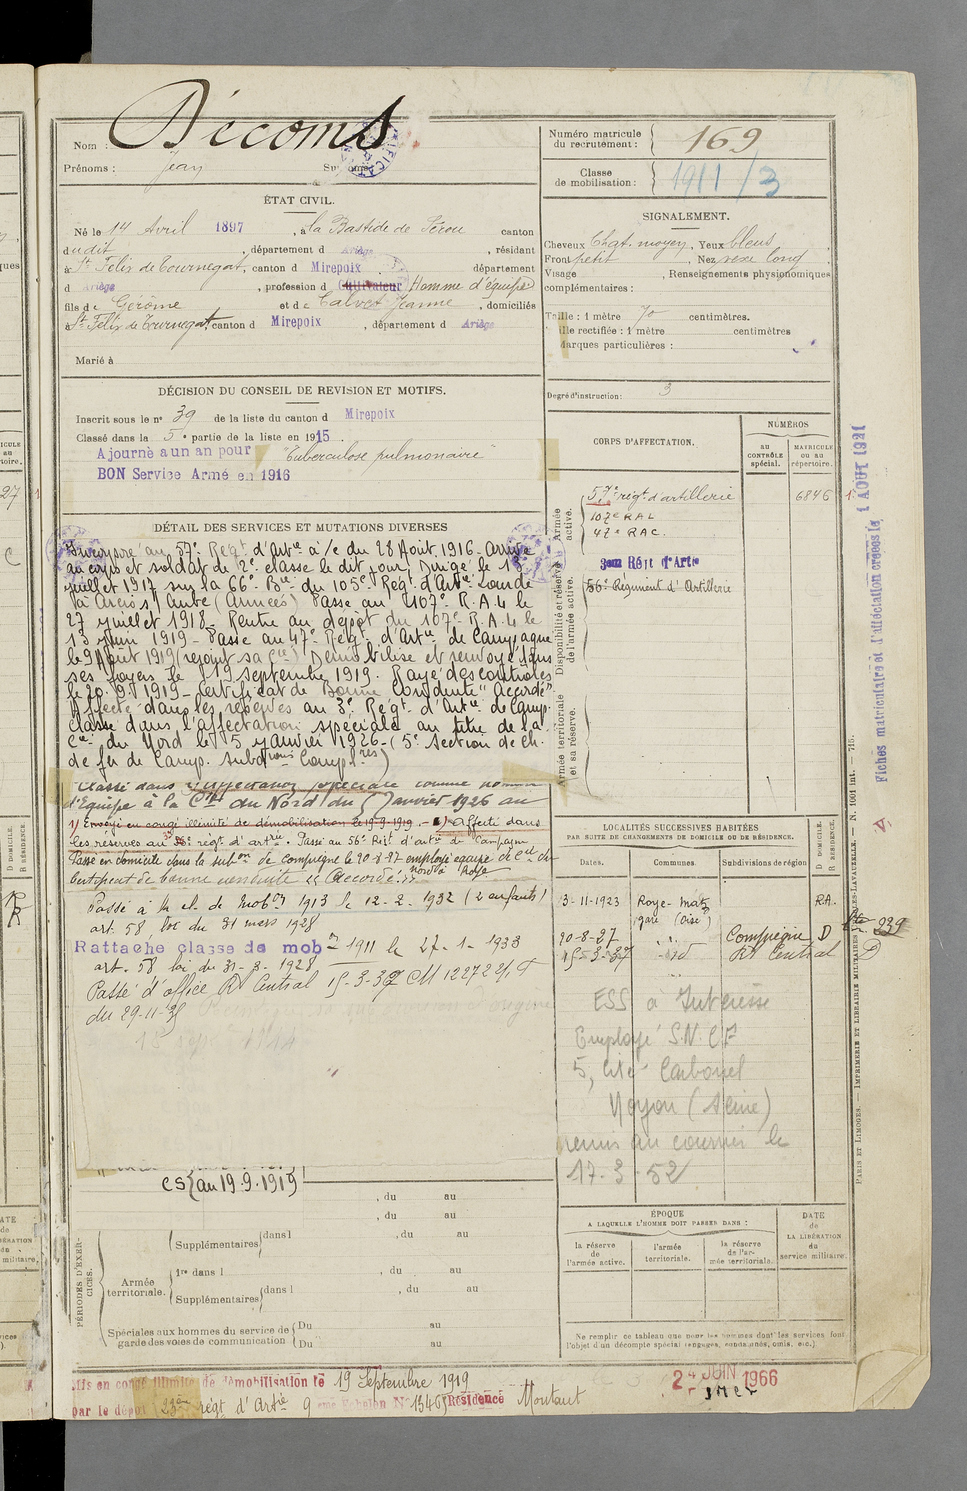 Nom : Décoms
Prénoms : Jean Surnoms :
Numéro matricule du recrutement : 169
Classe de mobilisation : 1911/3
ÉTAT CIVIL.
Né le 14 Avril 1897, à la Bastide de Sérou canton
dudit, département d Ariège, résidant
à St Felix de Tournegat, canton d Mirepoix, département
d Ariège, profession d Cultivateur Homme d'équipe
fils de Gérôme et de Calvet Jeanne, domiciliés
à St Felix de Tournegat canton d Mirepoix, département d Ariège
Marié à
SIGNALEMENT.
Cheveux Chat. moyen, Yeux bleus,
Front petit, Nez long
Visage , Renseignements physionomiques
complémentaires :
Taille : 1 mètre 70 centimètres.
Taille rectifiée : 1 mètre centimètres
Marques particulières :
Degré d'instruction : 3
DÉCISION DU CONSEIL DE REVISION ET MOTIFS.
Inscrit sous le n° 39 de la liste du canton d Mirepoix
Classé dans la 5e partie de la liste en 1915.
Ajourné a un an pour Tuberculose pulmonaire
BON Service Armé en 1916
DÉTAIL DES SERVICES ET MUTATIONS DIVERSES
Incorporé au 57e Regt d'Artie à/c du 28 Août 1916. Arrivé
au corps et soldat de 2e classe le dit jour. Dirigé le 1er
juillet 1917 sur la 66e Bie du 105e Regt d'Artie Lourde
à Arcis s/Aube (Armées) Passé au 107e R.A.L le
27 juillet 1918. Rentré au dépôt du 107e R.A.L le
13 juin 1919. Passé au 47e Regt d'Artie de Campagne
le 9 Août 1919 (rejoint sa Cie) Démobilisé et renvoyé dans
ses foyers le 19 septembre 1919. Rayé des contrôles
le 20.9.1919. Certificat de Bonne Conduite "Accordé".
Affecté dans les réserves au 3e Regt d'Artie de Camp.
Classé dans l'affectation spéciale au titre de la
Cie du Nord le 5 janvier 1926. (5e Section de Ch.
de fer de Camp. Subdvions Complres)
Classé dans l'affectation spéciale comme homme
d'équipe à la Cie du Nord du 5 Janvier 1926 au
1) Envoyé en congé illimité de démobilisation le 19.9.1919. Affecté dans
les réserves au 3e régt d'artrie. Passé au 56e Régt d'artie de Campagne
Passé en domicile dans la subon de Compiègne le 20-8-27 employé
Certificat de bonne conduite "Accordé"
Passé à la cl. de mobon 1913 le 12-2-1932 (2 enfants)
art. 58, loi du 31 mars 1928
Rattaché classe de mobon 1911 le 27-1-1933
art. 58 loi du 31-3-1928
Passé d'office Rt Central 15-3-37 CM 12272
du 29-11-35
CS au 19.9.1919
, du au
, du au
PÉRIODES D'EXERCICES.
Supplémentaires dans l , du au
Armée territoriale.
1re dans l , du au
Supplémentaires dans l , du au
Spéciales aux hommes du service de garde des voies de communication
Du au
Du au
Mis en congé illimité de démobilisation le 19 Septembre 1919
par le dépôt 23ème régt d'Artie 9 eme Echelon N° 15465 Résidence Montaut
CORPS D'AFFECTATION.
NUMÉROS
au CONTRÔLE spécial.
MATRICULE OU AU répertoire.
Armée active.
57e régt d'artillerie 6846
107e RAL
47e RAC.
Disponibilité et réserve de l'armée active.
3em Régt d'Artie
56e Régiment d'Artillerie
Armée territoriale et sa réserve.
LOCALITÉS SUCCESSIVES HABITÉES
PAR SUITE DE CHANGEMENTS DE DOMICILE OU DE RÉSIDENCE.
Dates. Communes. Subdivisions de région D DOMICILE. R RÉSIDENCE.
3-11-1923 Roye-matz gare (Oise) RA.
20-8-27 Compiègne D
15-3-37 id Rt Central D
239
ESS à Intéressé
Employé S.N.C.F
5, cité Carbonel
Noyon
remis au courrier le
17-3-52
ÉPOQUE
A LAQUELLE L'HOMME DOIT PASSER DANS :
la réserve de l'armée active.
l'armée territoriale.
la réserve de l'armée territoriale.
DATE de LA LIBÉRATION du service militaire.
Ne remplir ce tableau que pour les hommes dont les services font
l'objet d'un décompte spécial (engagés, condamnés, omis, etc.)
24 JUIN 1966
Fiches matriculaire et d'affectation créées le 1 AOUT 1921
PARIS ET LIMOGES. — IMPRIMERIE ET LIBRAIRIE MILITAIRES CHARLES-LAVAUZELLE. — N. 1001 int. — 715.